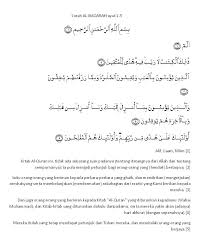 Surah AL-BAQARAH ayat 1-5
بِسْمِ ٱللَّهِ ٱلرَّحْمَٰنِ ٱلرَّحِيمِ
الٓمٓ
ذَٰلِكَ ٱلْكِتَٰبُ لَا رَيْبَ فِيهِ هُدًى لِّلْمُتَّقِينَ
ٱلَّذِينَ يُؤْمِنُونَ بِٱلْغَيْبِ وَيُقِيمُونَ ٱلصَّلَوٰةَ وَمِمَّا رَزَقْنَٰهُمْ يُنفِقُونَ
وَٱلَّذِينَ يُؤْمِنُونَ بِمَآ أُنزِلَ إِلَيْكَ وَمَآ أُنزِلَ مِن قَبْلِكَ وَبِٱلْءَاخِرَةِ هُمْ يُوقِنُونَ
أُو۟لَٰٓئِكَ عَلَىٰ هُدًى مِّن رَّبِّهِمْ وَأُو۟لَٰٓئِكَ هُمُ ٱلْمُفْلِحُونَ
Alif, Laam, Miim. [1]
Kitab Al-Quran ini, tidak ada sebarang syak padanya (tentang datangnya dari Allah dan tentang
sempurnanya); ia pula menjadi petunjuk bagi orang-orang yang (hendak) bertaqwa; [2]
Iaitu orang-orang yang beriman kepada perkara-perkara yang ghaib, dan mendirikan (mengerjakan)
sembahyang serta membelanjakan (mendermakan) sebahagian dari rezeki yang Kami berikan kepada
mereka. [3]
Dan juga orang-orang yang beriman kepada Kitab "Al-Quran" yang diturunkan kepadamu (Wahai
Muhammad), dan Kitab-kitab yang diturunkan dahulu daripadamu, serta mereka yakin akan (adanya)
hari akhirat (dengan sepenuhnya). [4]
Mereka itulah yang tetap mendapat petunjuk dari Tuhan mereka, dan merekalah orang-orang yang
berjaya. [5]